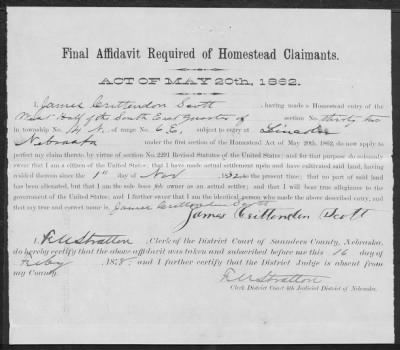 Final Affidavit Required of Homestead Claimants.
ACT OF MAY 20th, 1862.
I, James Crittendon Scott, having made a Homestead entry of the
West Half of the South East Quarter of section No. thirty two
in township No. 14 N. of range No. 6 E., subject to entry at Lincoln
Nebraska under the first section of the Homestead Act of May 20th, 1862, do now apply to
perfect my claim thereto by virtue of section No. 2291 Revised Statutes of the United States: and for that purpose do solemnly
swear that I am a citizen of the United States; that I have made actual settlement upon and have cultivated said land, having
resided thereon since the 1st day of Nov 1872 to the present time; that no part of said land
has been alienated, but that I am the sole bona fide owner as an actual settler; and that I will bear true allegiance to the
government of the United States; and I further swear that I am the identical person who made the above described entry, and
that my true and correct name is James Crittendon Scott
James Crittenden Scott
I, F. M. Stratton, Clerk of the District Court of Saunders County, Nebraska,
do hereby certify that the above affidavit was taken and subscribed before me this 16 day of
Feby 1878; and I further certify that the District Judge is absent from
my County.
F. M. Stratton
Clerk District Court 4th Judicial District of Nebraska.